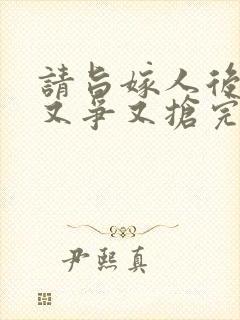 請旨嫁人後
又爭又搶完
尹熙真